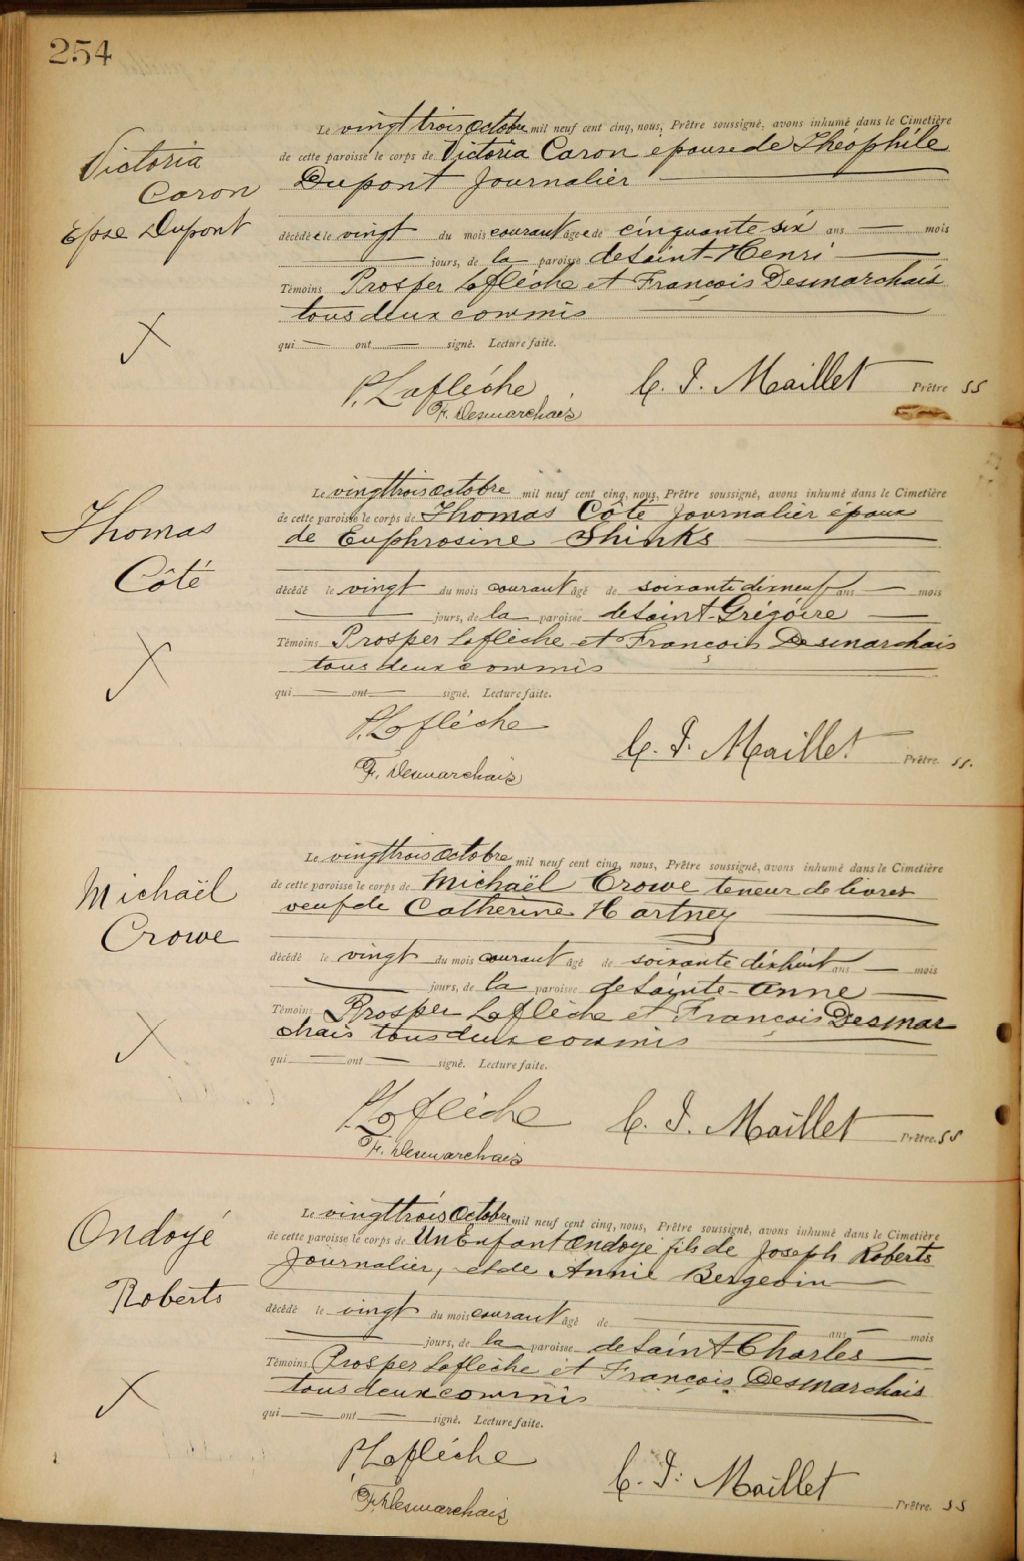 254
Victoria
Caron
Epse Dupont
Le vingt trois octobre mil neuf cent cinq, nous, Prêtre soussigné, avons inhumé dans le Cimetière
de cette paroisse le corps de Victoria Caron épouse de Théophile
Dupont Journalier
décédée le vingt du mois courant âgée de cinquante six ans — mois
— jours, de la paroisse de Saint-Henri —
Témoins Prosper Laflèche et François Desmarchais
tous deux commis
qui — ont — signé. Lecture faite.
P. Laflèche C. J. Maillet Prêtre SS
F. Desmarchais
Thomas
Côté
Le vingt trois octobre mil neuf cent cinq, nous, Prêtre soussigné, avons inhumé dans le Cimetière
de cette paroisse le corps de Thomas Côté Journalier époux
de Euphrosine Shinks
décédé le vingt du mois courant âgé de soixante dix neuf ans — mois
— jours, de la paroisse de Saint-Grégoire —
Témoins Prosper Laflèche et François Desmarchais
tous deux commis
qui — ont — signé. Lecture faite.
P. Laflèche
C. J. Maillet Prêtre. SS.
F. Desmarchais
Michaël
Crowe
Le vingt trois octobre mil neuf cent cinq, nous, Prêtre soussigné, avons inhumé dans le Cimetière
de cette paroisse le corps de Michaël Crowe teneur de livres
veuf de Catherine Hartney
décédé le vingt du mois courant âgé de soixante dix huit ans — mois
— jours, de la paroisse de Sainte-Anne —
Témoins Prosper Laflèche et François Desmar
chais tous deux commis
qui — ont — signé. Lecture faite.
P. Laflèche C. J. Maillet Prêtre. SS
F. Desmarchais
Ondoyé
Roberts
Le vingt trois Octobre mil neuf cent cinq, nous, Prêtre soussigné, avons inhumé dans le Cimetière
de cette paroisse le corps de Un Enfant Ondoyé fils de Joseph Roberts
Journalier, et de Annie Bergevin
décédé le vingt du mois courant âgé de — ans — mois
— jours, de la paroisse de Saint-Charles —
Témoins Prosper Laflèche et François Desmarchais
tous deux commis
qui — ont — signé. Lecture faite.
P. Laflèche
C. J. Maillet Prêtre. SS
F. Desmarchais